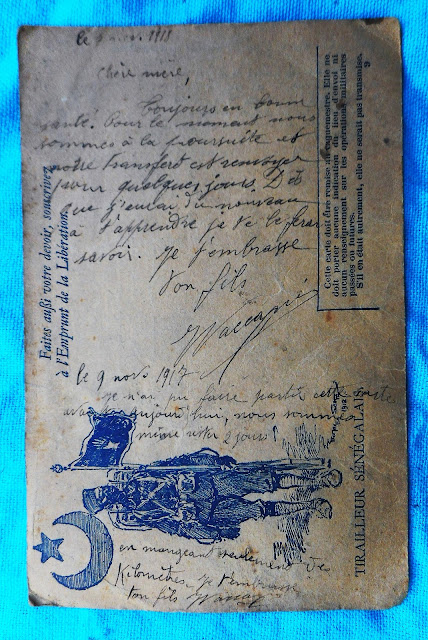 le 6 nov. 1918
Chère mère,
Toujours en bonne
santé. Pour le moment nous
sommes à la poursuite et
notre transfert est renvoyer
pour quelques jours. Dès
que j'aurai du nouveau
à t'apprendre je te le ferai
savoir. Je t'embrasse
Ton fils
le 9 nov
je n'ai pu faire partir cette carte
avant aujourd'hui, nous sommes
même rester 2 jours
en mangeant seulement des
Kilomètres. Je t'embrasse
ton fils
Faites aussi votre devoir, souscrivez
à l'Emprunt de la Libération.
Cette carte doit être remise au vaguemestre. Elle ne
doit porter aucune indication du lieu d'envoi ni
aucun renseignement sur les opérations militaires
passées ou futures.
S'il en était autrement, elle ne serait pas transmise.
9
TIRAILLEUR SÉNÉGALAIS.